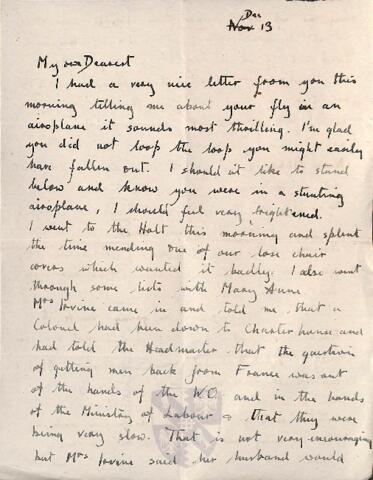 Dec
Nov 13
My own Dearest
I had a very nice letter from you this
morning telling me about your fly in an
airoplane it sounds most thrilling. I'm glad
you did not loop the loop you might easily
have fallen out. I should it like to stand
below and know you were in a stunting
airoplane, I should feel very frightened.
I went to the Halt this morning and spent
the time mending one of our lose chair
covers which wanted it badly. I also went
through some lists with Mary Anne.
Mrs Irvine came in and told me that a
Colonel had been down to Charterhouse and
had told the Headmaster that the question
of getting men back from France was out
of the hands of the W.O. and in the hands
of the Ministry of Labour & that they were
being very slow. That is not very encouraging
but Mrs Irvine said her husband would